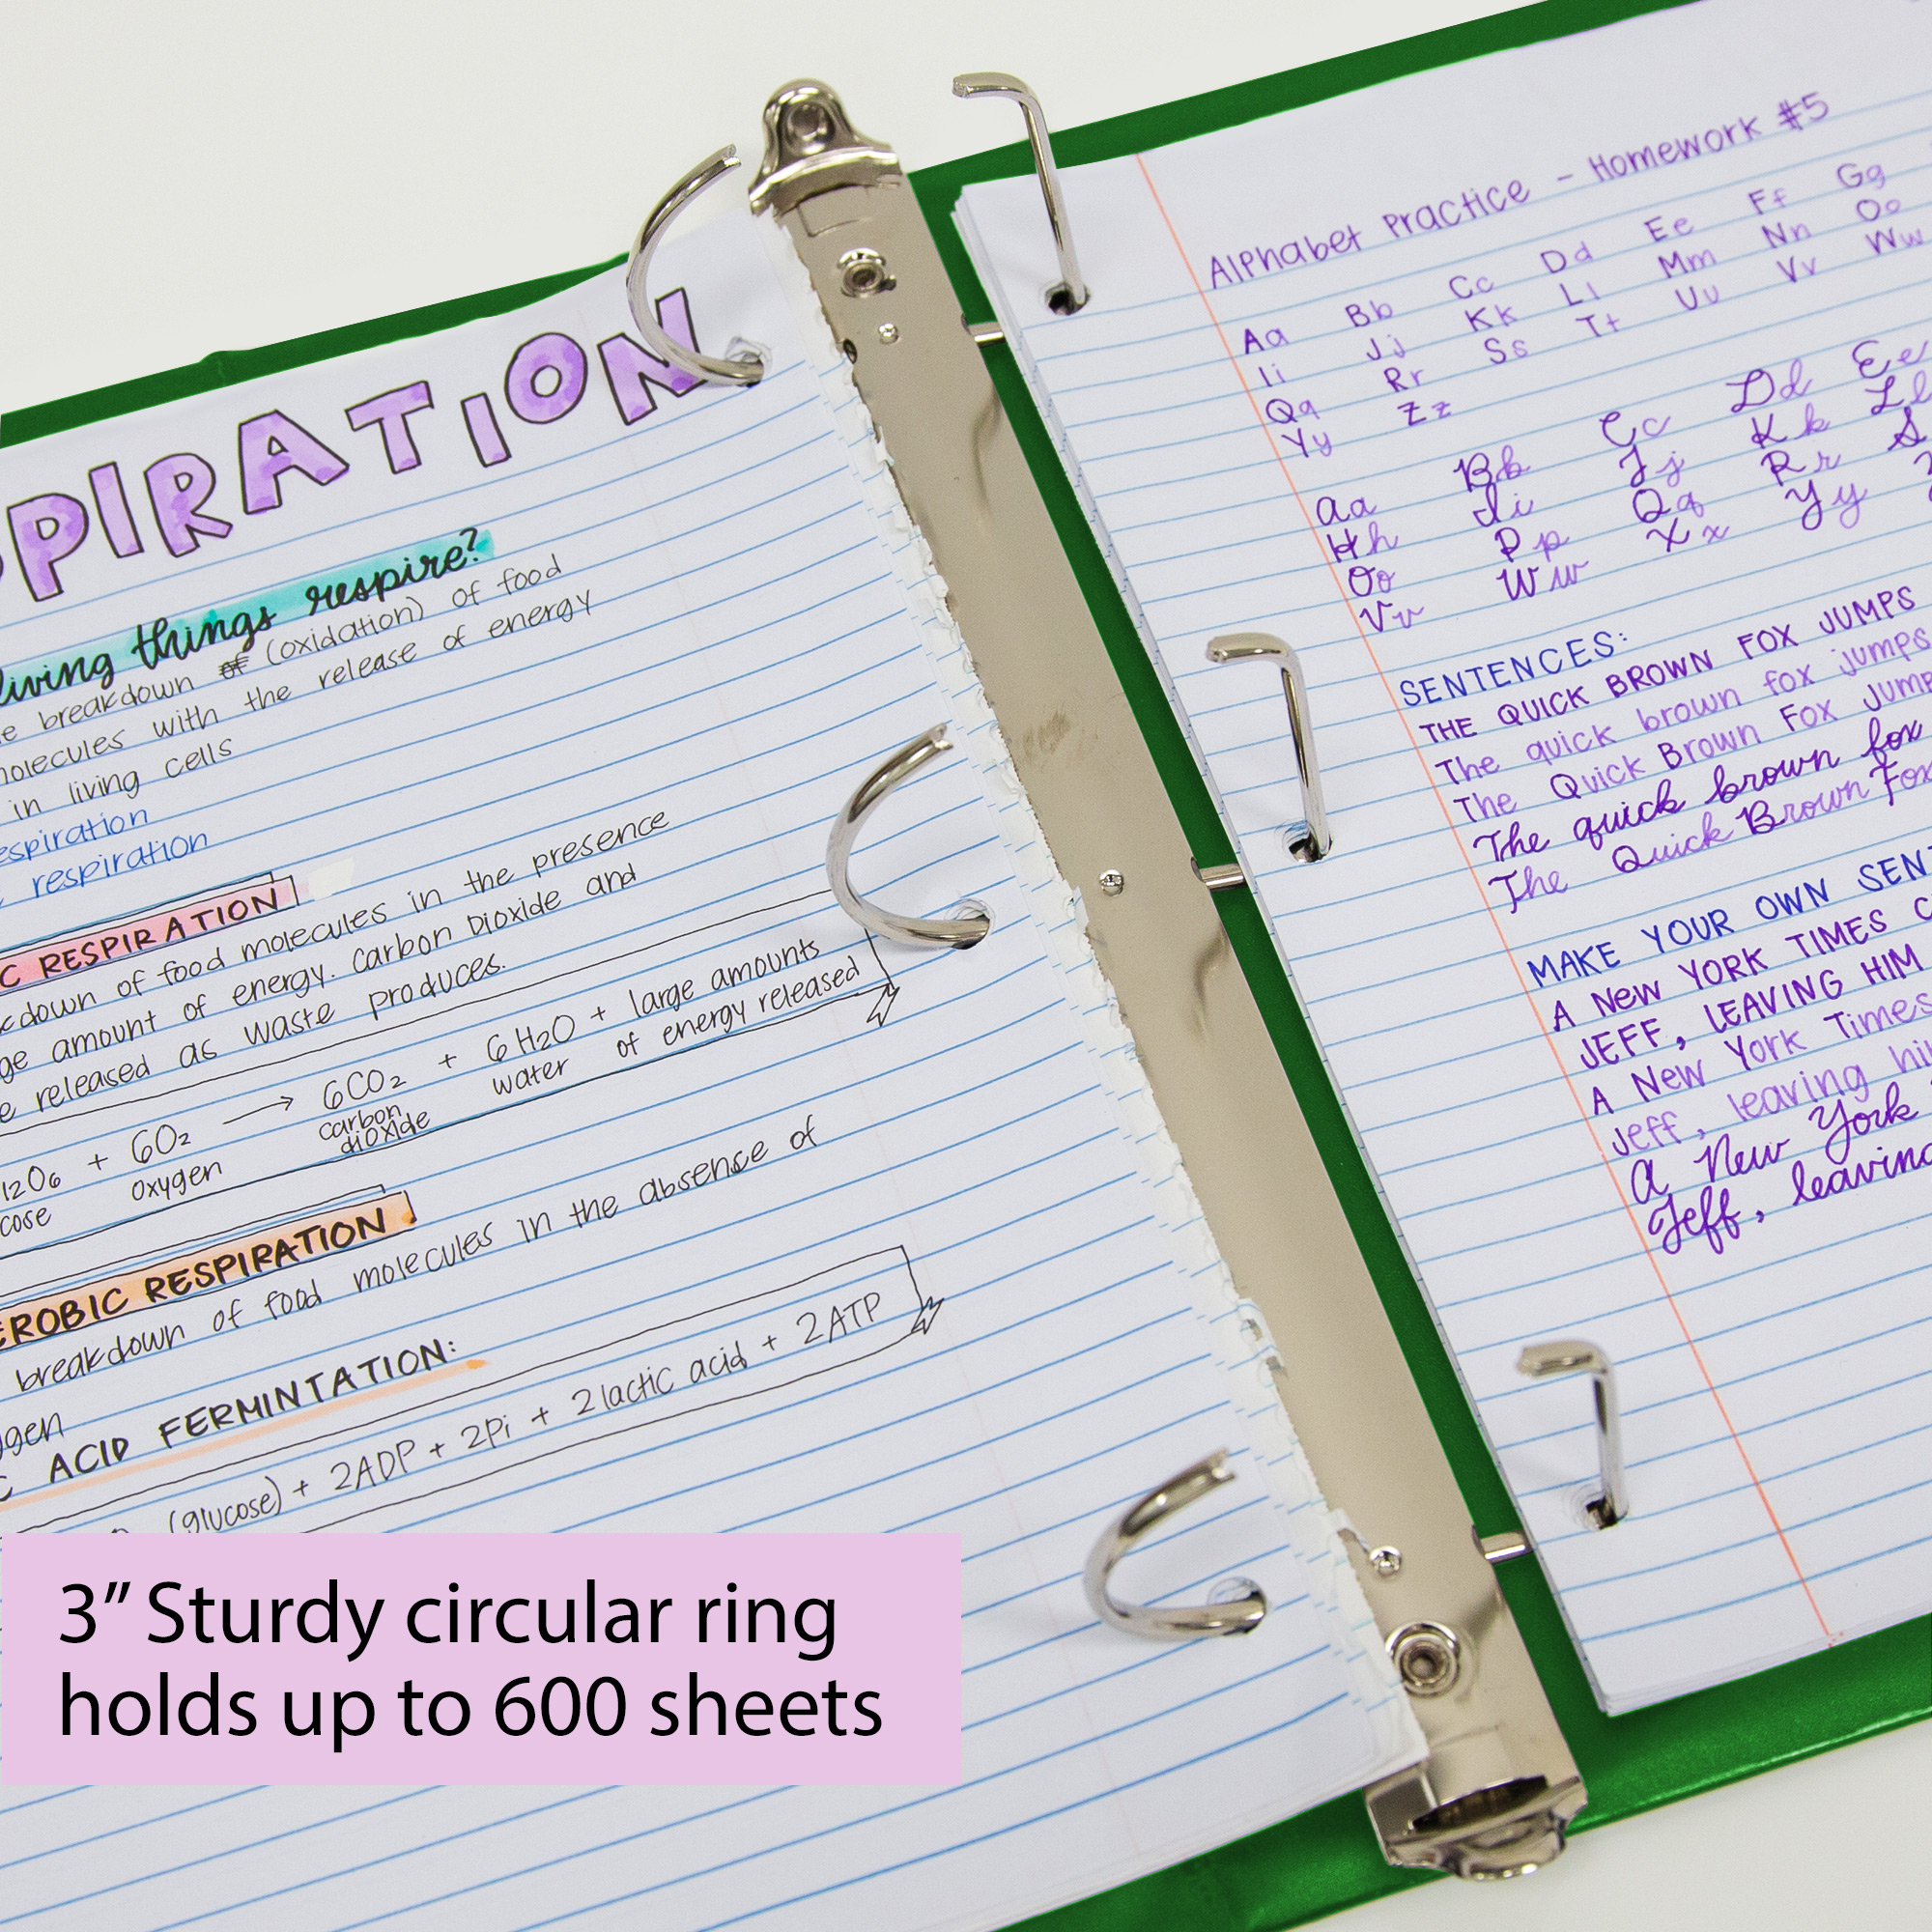 PIRATION
living things respire?
breakdown of (oxidation) of food
molecules with the release of energy
in living cells
respiration
respiration
C RESPIRATION
down of food molecules in the presence
amount of energy. Carbon Dioxide and
released as waste produces.
12O6 + 6O2 → 6CO2 + 6H2O + large amounts
cose oxygen carbon dioxide water of energy released
EROBIC RESPIRATION
breakdown of food molecules in the absence of
gen
C ACID FERMINTATION:
(glucose) + 2ADP + 2Pi + 2lactic acid + 2ATP
3" Sturdy circular ring
holds up to 600 sheets
Alphabet Practice - Homework #5
Aa Bb Cc Dd Ee Ff Gg
Ii Jj Kk Ll Mm Nn Oo
Qq Rr Ss Tt Uu Vv Ww
Yy Zz
Aa Bb Cc Dd Ee
Hh Ii Jj Kk Ll
Oo Pp Qq Rr S
Vv Ww Xx Yy
SENTENCES:
THE QUICK BROWN FOX JUMPS
The quick brown fox jumps
The Quick Brown Fox Jump
The quick brown fox
The Quick Brown Fox
MAKE YOUR OWN SENT
A NEW YORK TIMES C
JEFF, LEAVING HIM
A New York Times
Jeff, leaving hi
A New York
Jeff, leaving